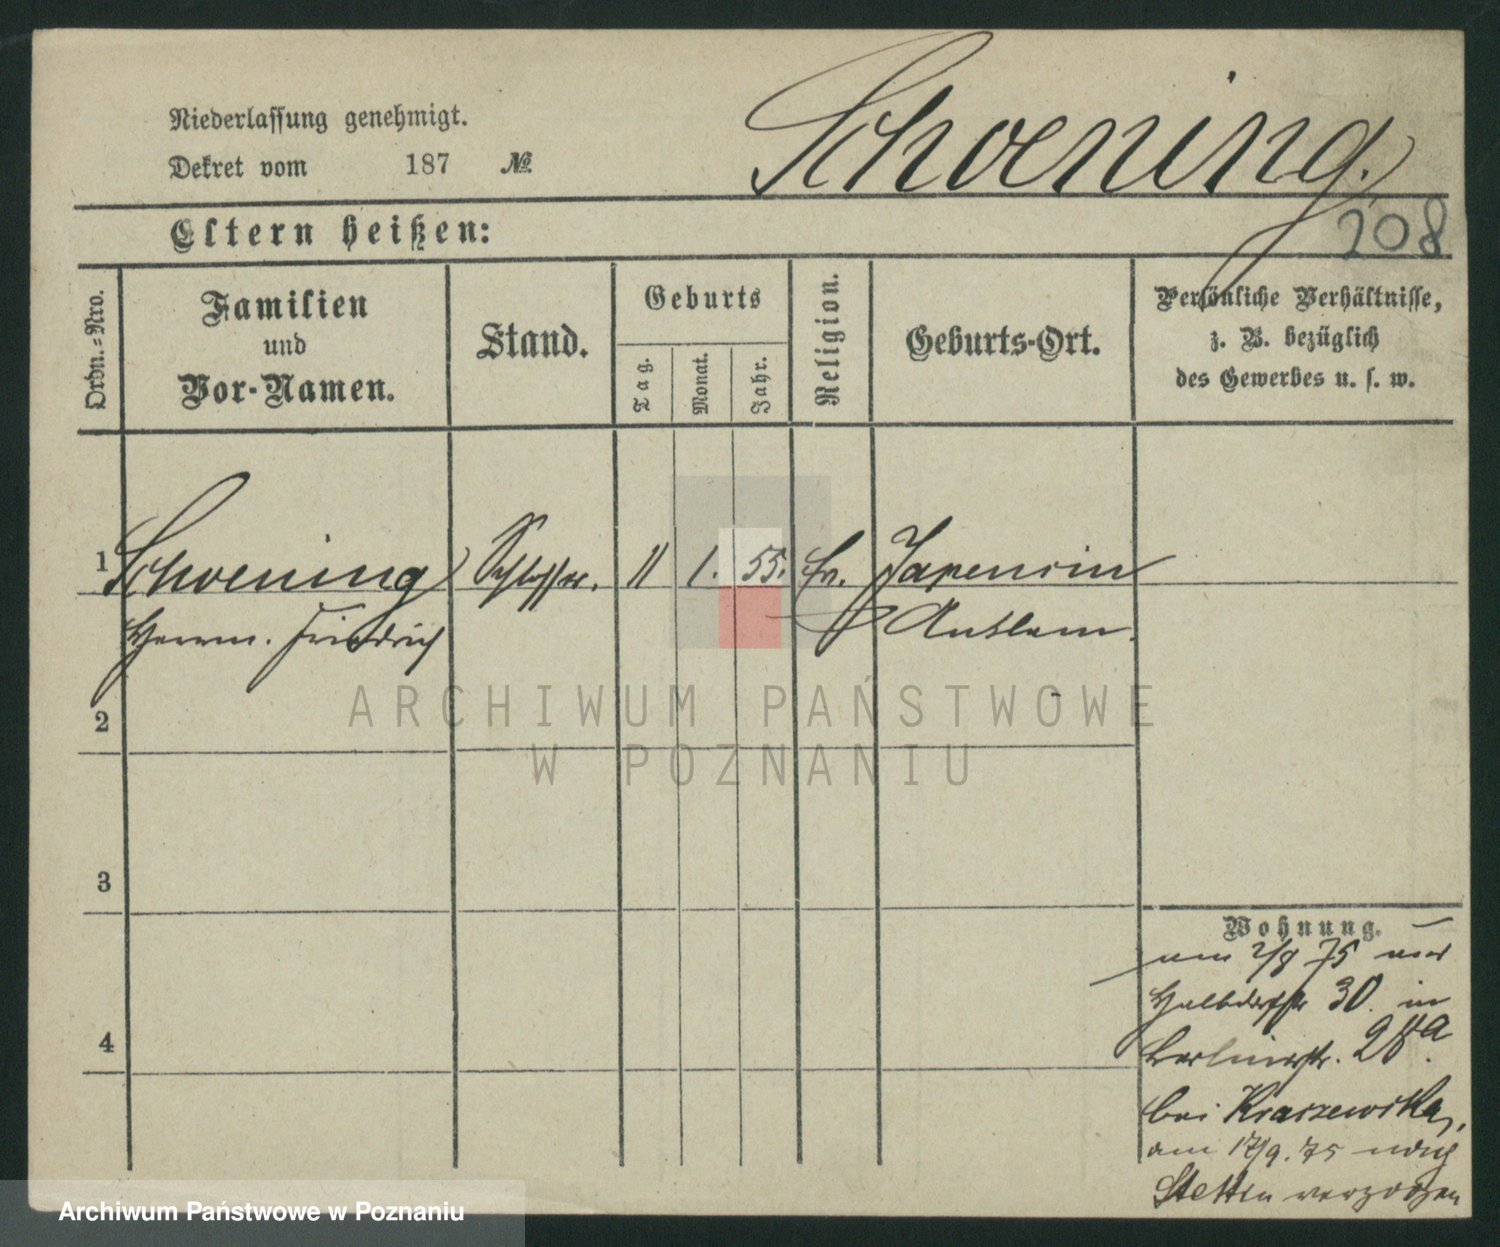 Niederlassung genehmigt.
Schoening.
Dekret vom 187 №
208
Eltern heißen:
Ordn.-Nro.
Familien
und
Vor-Namen.
Stand.
Geburts
Tag.
Monat.
Jahr.
Religion.
Geburts-Ort.
Persönliche Verhältnisse,
z. B. bezüglich
des Gewerbes u. s. w.
1 Schoening Schlosser. 11 1. 55. Ev. Japenzin
Herrm. Friedrich Anklam.
2
3
4
Wohnung.
am 2/8 75 aus
Halbdorfstr 30. in
Berlinerstr. 28a.
bei Kraszewska,
am 17/9. 75 nach
Stettin verzogen
ARCHIWUM PAŃSTWOWE
W POZNANIU
Archiwum Państwowe w Poznaniu